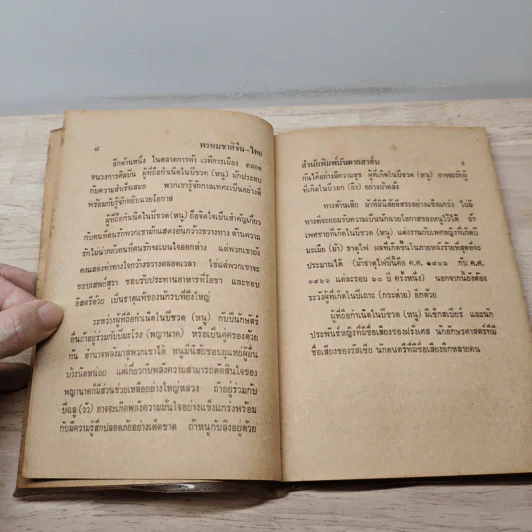 ๘
พรหมชาติจีน-ไทย
อีกด้านหนึ่ง ในตลาดการค้า เวทีการเมือง ตลอด
จนวงการศิลปิน ผู้ที่ถือกำเนิดในปีชวด (หนู) มักประสบ
กับความสำเร็จเสมอ พวกเขารู้จักกาเทศะเป็นอย่างดี
พร้อมกับรู้จักหยิบฉวยโอกาส
ผู้ที่ถือกำเนิดในปีชวด (หนู) ถือจิตใจเป็นสำคัญเกี่ยว
กับคนที่ตนรักพวกเขามักแสดงอย่างกว้างขวางทาง ด้านความ
รักไม่น่ากลัวคนที่ตนรักจะเบนใจออกห่าง แต่พวกเขายัง
คงแสดงท่าทางใจกว้างขวางตลอดเวลา ใช่แต่พวกเขาจะ
ชอบเสพย์สุรา ชอบรับประทานอาหารที่โอชา และชอบ
อิสตรีด้วย เป็นธาตุแท้ของนักรบที่ยิ่งใหญ่
ระหว่างผู้ที่ถือกำเนิดในปีชวด (หนู) กับปีนักษัตร์
อื่นถ้าอยู่ร่วมกับปีมะโรง (พญานาค) หรือเป็นคู่ครองด้วย
กัน อำนาจพลังมาสู่พวกเขาได้ หนูมีนิสัยชอบแหย่ผู้อื่น
บ้างนิดหน่อย แต่เกี่ยวกับพลังความสามารถตัดสินใจของ
พญานาคก็มีส่วนช่วยเหลืออย่างใหญ่หลวง ถ้าอยู่ร่วมกับ
ปีฉลู (วัว) อาจจะเกิดพลังความมั่นใจอย่างแข็งแกร่งพร้อม
กับมีความรู้สึกปลอดภัยอย่างเด็ดขาด ถ้าหนูกับลิงอยู่ด้วย
สำนักพิมพ์มันตาลสาส์น
๙
กันได้อย่างมีความสุข ผู้ที่เกิดในปีชวด (หนู) อาจจะรักผู้
ที่เกิดในปีวอก (ลิง) อย่างบ้าคลั่ง
ทางด้านเสีย ม้าที่มีนิสัยอิสระอย่างแข็งแกร่ง ไม่มี
ทางที่จะยอมรับความเป็นนักฉวยโอกาสของหนูไว้ได้ ถ้า
เพศชายที่เกิดในปีชวด (หนู) แต่งงานกับเพศหญิงที่เกิดปี
มะเมีย (ม้า) ธาตุไฟ ผลที่เกิดขึ้นในภายหลังร้ายที่สุดที่จะ
ประมาณได้ (ม้าธาตุไฟปีนี้คือ ค.ศ. ๑๙๐๖ กับ ค.ศ.
๑๙๖๖ แต่ละรอบ ๖๐ ปี ครั้งหนึ่ง) นอกจากนี้ยังต้อง
ระวังผู้ที่เกิดในปีเถาะ (กระต่าย) อีกด้วย
ผู้ที่ถือกำเนิดในปีชวด (หนู) มีเช็กสเปียร์ และนัก
ประพันธ์หญิงที่มีชื่อเสียงของฝรั่งเศส นักอักษรศาสตร์ที่มี
ชื่อเสียงของรัสเซีย นักดนตรีที่มีชื่อเสียงอีกหลายคน